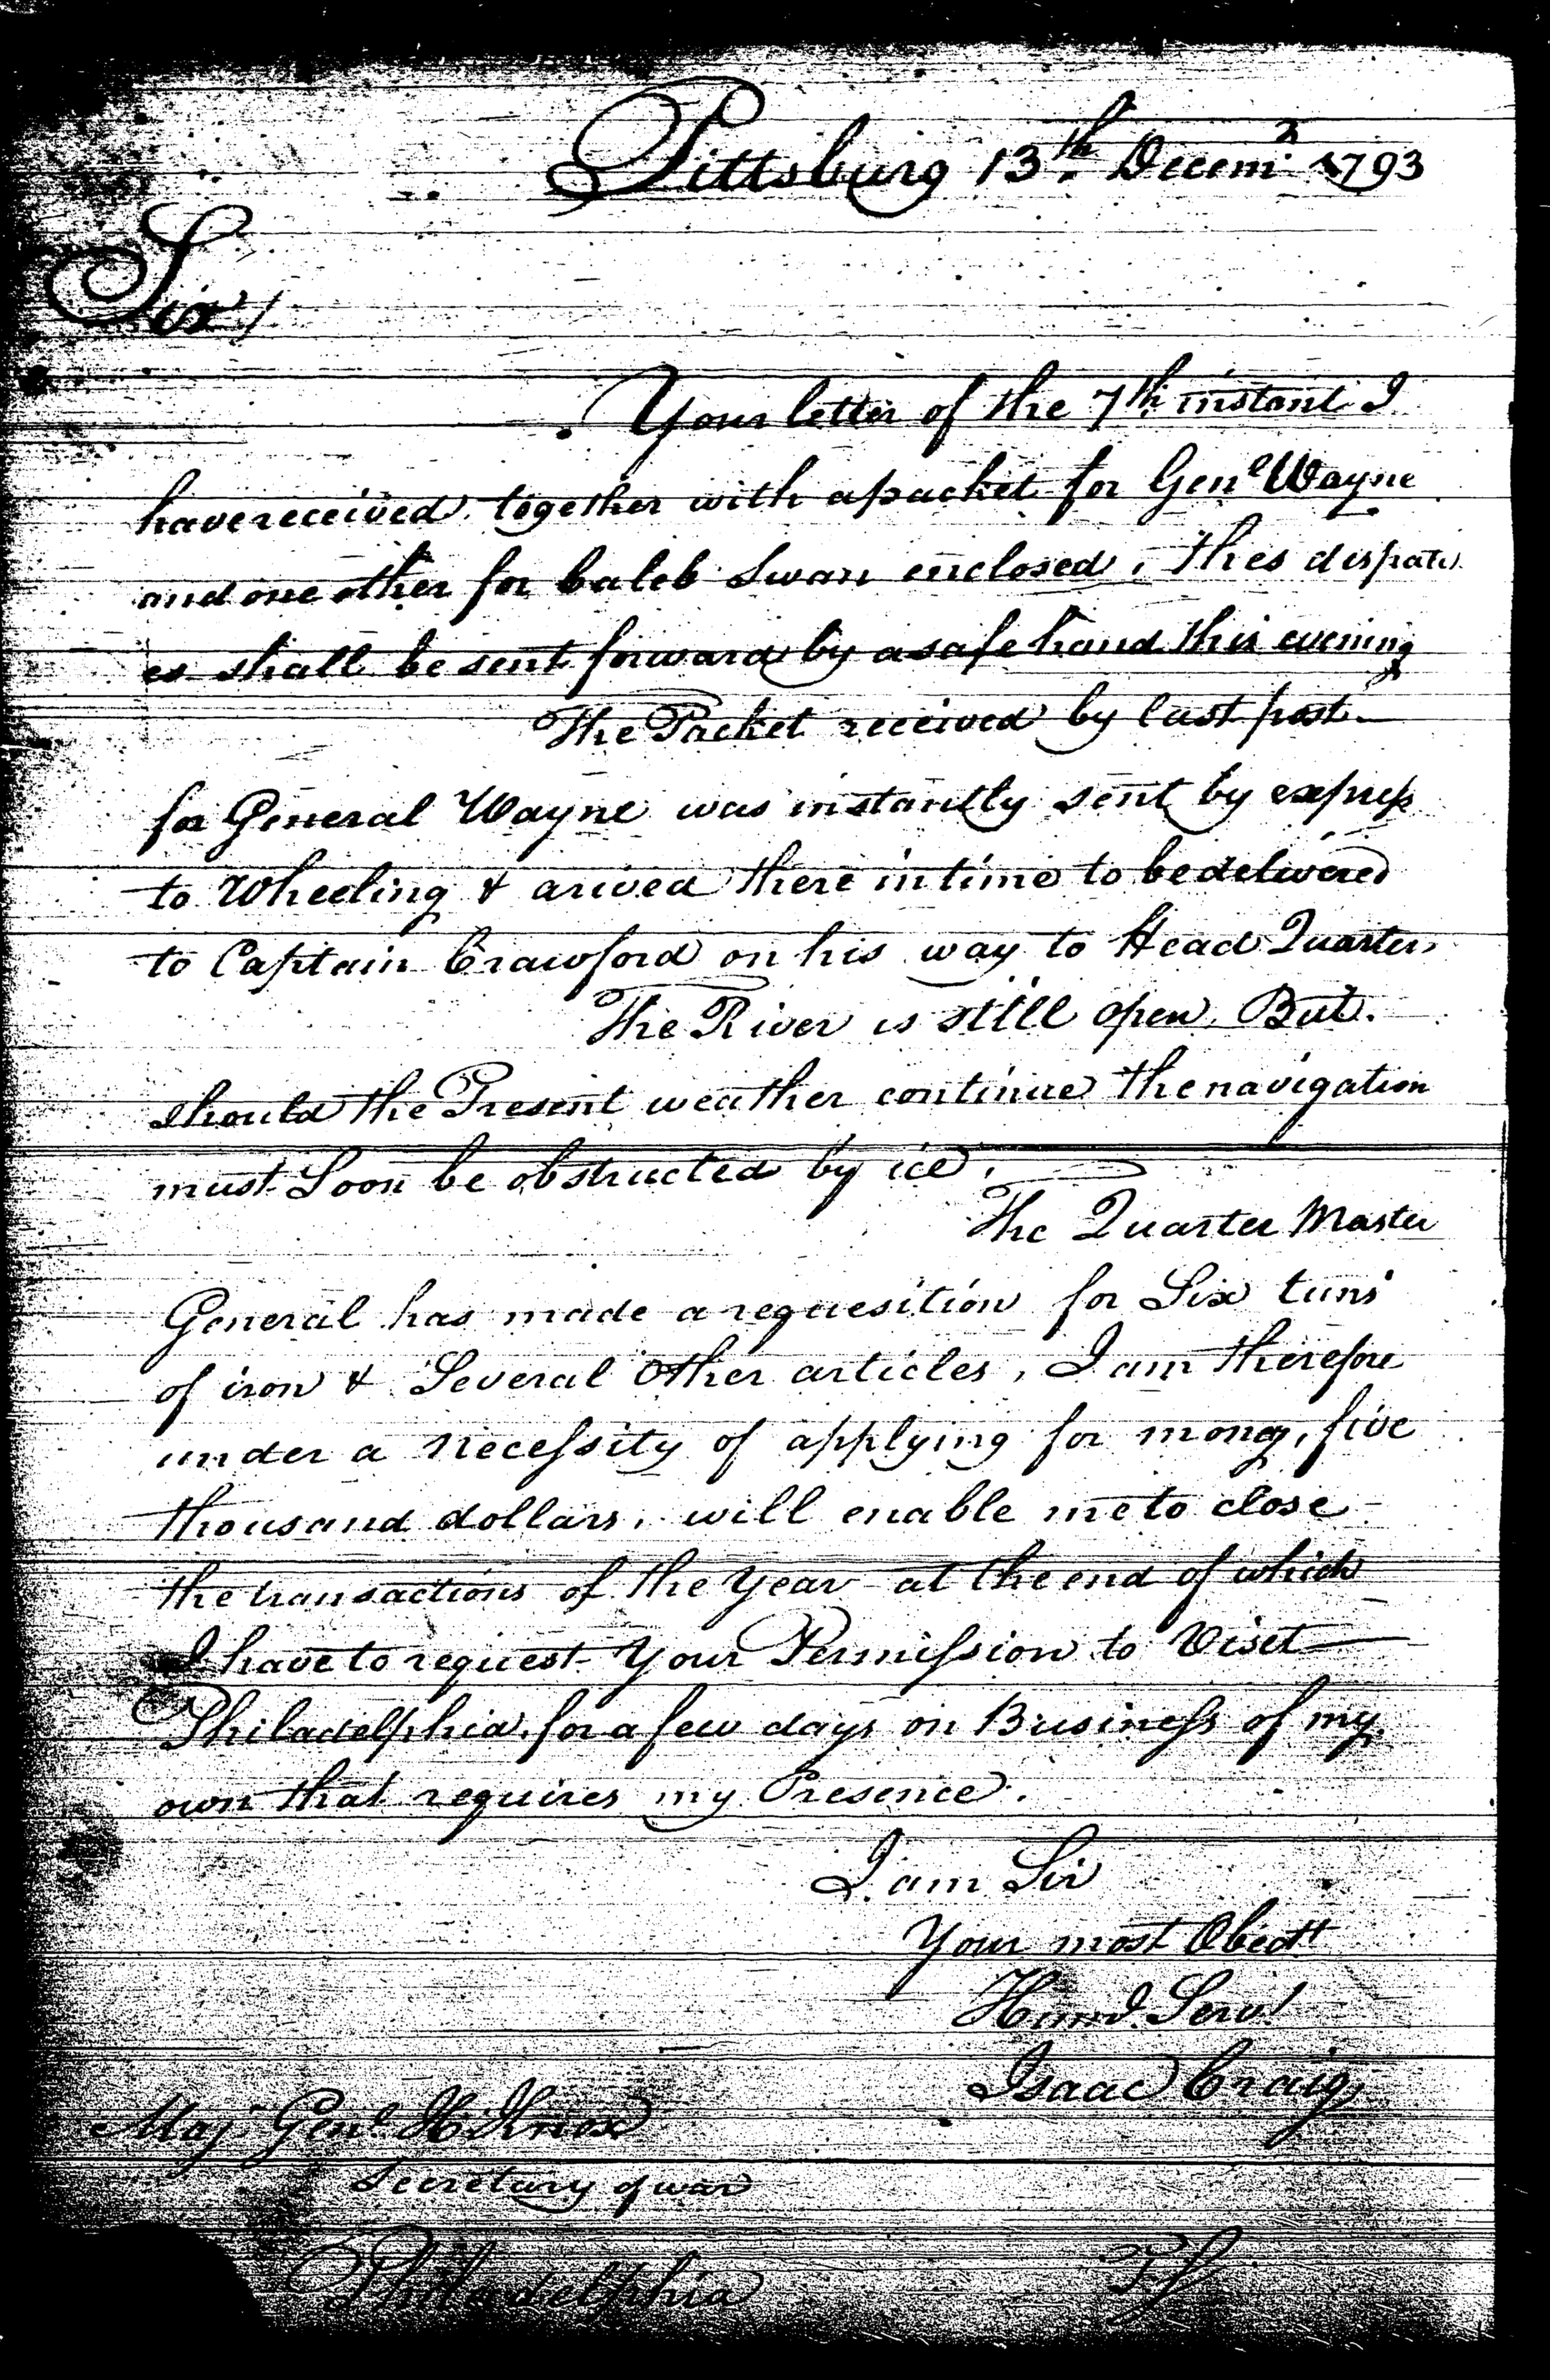 Pittsburg 13th. Decemr. 1793
Sir/
Your letter of the 7th instant I
have received, together with a packet for Genl Wayne
and one other for Caleb Swan enclosed, thes dispatc
es shall be sent forward by a safe hand this evening
The Packet received by last post
for General Wayne was instantly sent by express
to Wheeling & arived there in time to be delivered
to Captain Crawford on his way to Head Quarters
The River is still open, But
should the Present weather continue the navigation
must Soon be obstructed by ice.
The Quarter Master
General has made a requesition for Six tuns
of iron & Several Other articles, I am therefore
under a necessity of applying for mony, five
thousand dollars, will enable me to close
the transactions of the Year at the end of which
I have to request Your Permission to Viset
Philadelphia for a few days on Business of my
own that requires my Presence.
I am Sir
Your most Obedt
Humbl Servt
Isaac Craig
Maj. Genl. H Knox
Secretary of war
Philadelphia